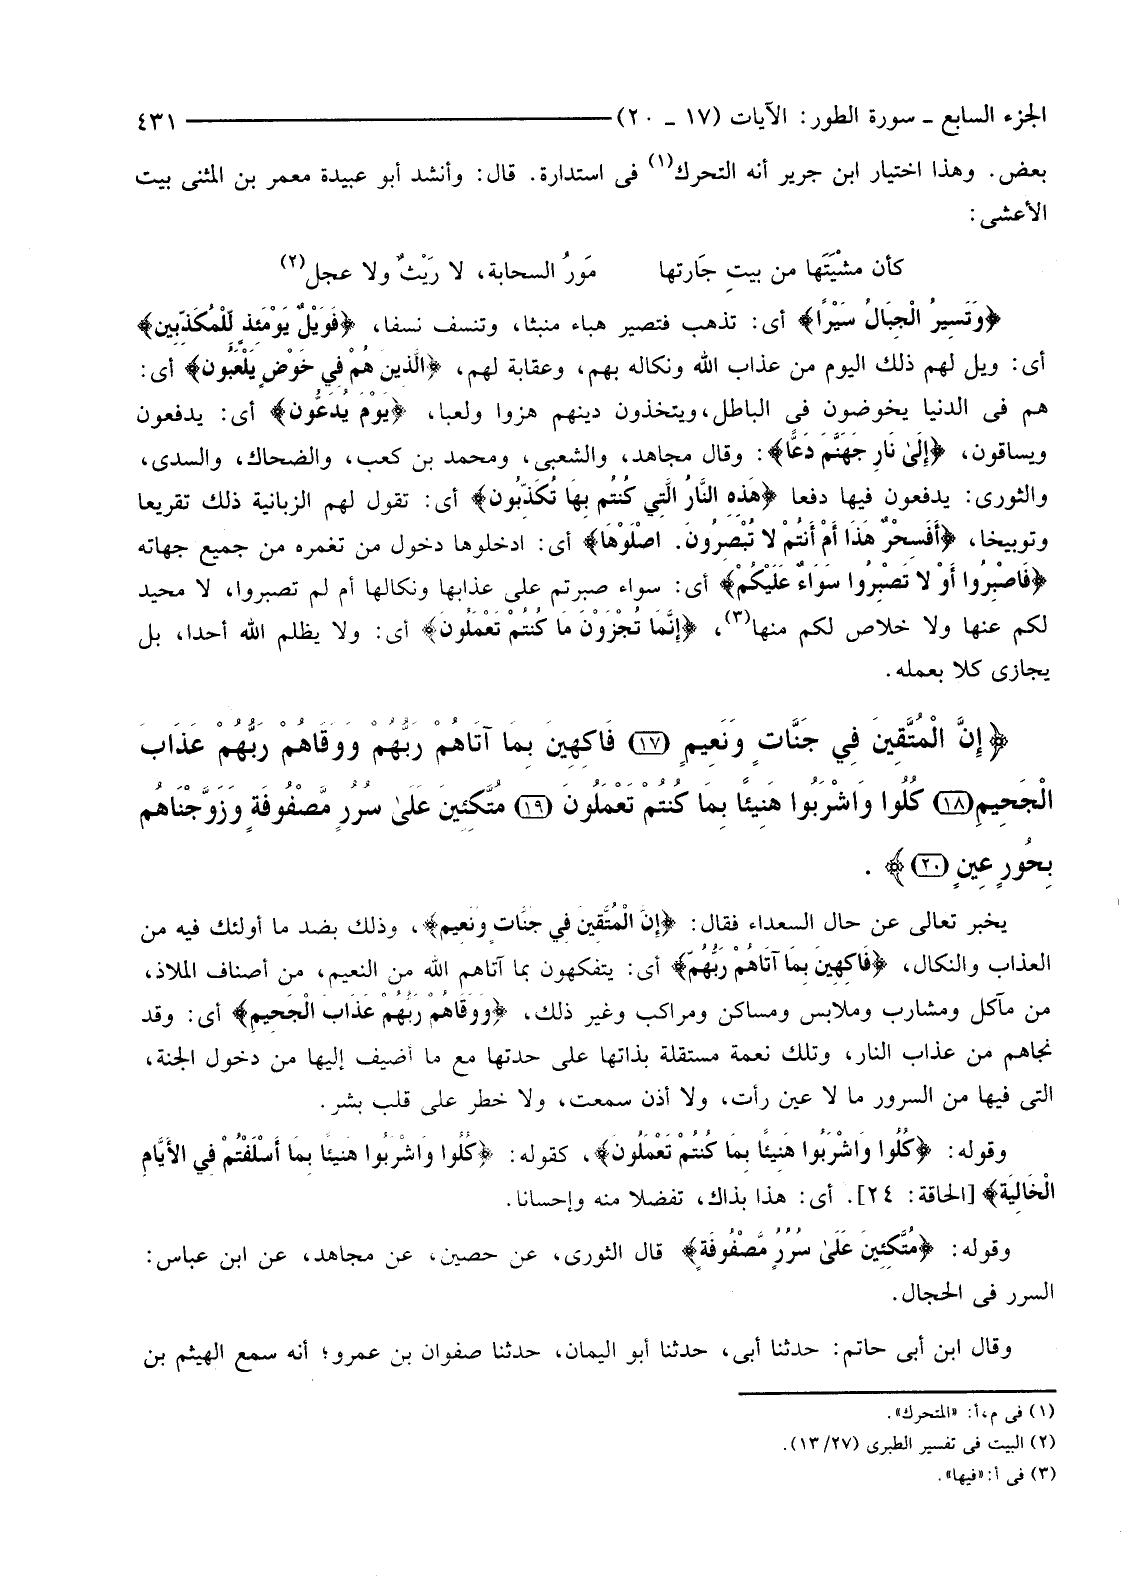 الجزء السابع ـ سورة الطور: الآيات (١٧ ـ ٢٠) ٤٣١
بعض. وهذا اختيار ابن جرير أنه التحرك(١) فى استدارة. قال: وأنشد أبو عبيدة معمر بن المثنى بيت
الأعشى:
كأن مشْيَتَها من بيتِ جَارتها مَورُ السحابة، لا رَيْثٌ ولا عجل(٢)
﴿وَتَسِيرُ الْجِبَالُ سَيْرًا﴾ أى: تذهب فتصير هباء منبثا، وتنسف نسفا، ﴿فَوَيْلٌ يَوْمَئِذٍ لِّلْمُكَذِّبِين﴾
أى: ويل لهم ذلك اليوم من عذاب الله ونكاله بهم، وعقابة لهم، ﴿الَّذِينَ هُمْ فِي خَوْضٍ يَلْعَبُون﴾ أى:
هم فى الدنيا يخوضون فى الباطل،ويتخذون دينهم هزوا ولعبا، ﴿يَوْمَ يُدَعُّون﴾ أى: يدفعون
ويساقون، ﴿إِلَىٰ نَارِ جَهَنَّمَ دَعًّا﴾: وقال مجاهد، والشعبى، ومحمد بن كعب، والضحاك، والسدى،
والثورى: يدفعون فيها دفعا ﴿هَذِهِ النَّارُ الَّتِي كُنتُم بِهَا تُكَذِّبُون﴾ أى: تقول لهم الزبانية ذلك تقريعا
وتوبيخا، ﴿أَفَسِحْرٌ هَذَا أَمْ أَنتُمْ لا تُبْصِرُونَ. اصْلَوْهَا﴾ أى: ادخلوها دخول من تغمره من جميع جهاته
﴿فَاصْبِرُوا أَوْ لا تَصْبِرُوا سَوَاءٌ عَلَيْكُمْ﴾ أى: سواء صبرتم على عذابها ونكالها أم لم تصبروا، لا محيد
لكم عنها ولا خلاص لكم منها(٣)، ﴿إِنَّمَا تُجْزَوْنَ مَا كُنتُمْ تَعْمَلُونَ﴾ أى: ولا يظلم الله أحدا، بل
يجازى كلا بعمله.
﴿إِنَّ الْمُتَّقِينَ فِي جَنَّاتٍ وَنَعِيمٍ (١٧) فَاكِهِينَ بِمَا آتَاهُمْ رَبُّهُمْ وَوَقَاهُمْ رَبُّهُمْ عَذَابَ
الْجَحِيمِ(١٨) كُلُوا وَاشْرَبُوا هَنِيئًا بِمَا كُنتُمْ تَعْمَلُونَ (١٩) مُتَّكِئِينَ عَلَىٰ سُرُرٍ مَّصْفُوفَةٍ وَزَوَّجْنَاهُم
بِحُورٍ عِينٍ (٢٠)﴾ .
يخبر تعالى عن حال السعداء فقال: ﴿إِنَّ الْمُتَّقِينَ فِي جَنَّاتٍ وَنَعِيم﴾، وذلك بضد ما أولئك فيه من
العذاب والنكال، ﴿فَاكِهِينَ بِمَا آتَاهُمْ رَبُّهُمْ﴾ أى: يتفكهون بما آتاهم الله من النعيم، من أصناف الملاذ،
من مآكل ومشارب وملابس ومساكن ومراكب وغير ذلك، ﴿وَوَقَاهُمْ رَبُّهُمْ عَذَابَ الْجَحِيمِ﴾ أى: وقد
نجاهم من عذاب النار، وتلك نعمة مستقلة بذاتها على حدتها مع ما أضيف إليها من دخول الجنة،
التى فيها من السرور ما لا عين رأت، ولا أذن سمعت، ولا خطر على قلب بشر.
وقوله: ﴿كُلُوا وَاشْرَبُوا هَنِيئًا بِمَا كُنتُمْ تَعْمَلُونَ﴾، كقوله: ﴿كُلُوا وَاشْرَبُوا هَنِيئًا بِمَا أَسْلَفْتُمْ فِي الأَيَّامِ
الْخَالِيَة﴾ [الحاقة: ٢٤]. أى: هذا بذاك، تفضلا منه وإحسانا.
وقوله: ﴿مُتَّكِئِينَ عَلَىٰ سُرُرٍ مَّصْفُوفَةٍ﴾ قال الثورى، عن حصين، عن مجاهد، عن ابن عباس:
السرر فى الحجال.
وقال ابن أبى حاتم: حدثنا أبى، حدثنا أبو اليمان، حدثنا صفوان بن عمرو؛ أنه سمع الهيثم بن
(١) فى م،أ: «المتحرك».
(٢) البيت فى تفسير الطبرى (٢٧/ ١٣).
(٣) فى أ:«فيها».